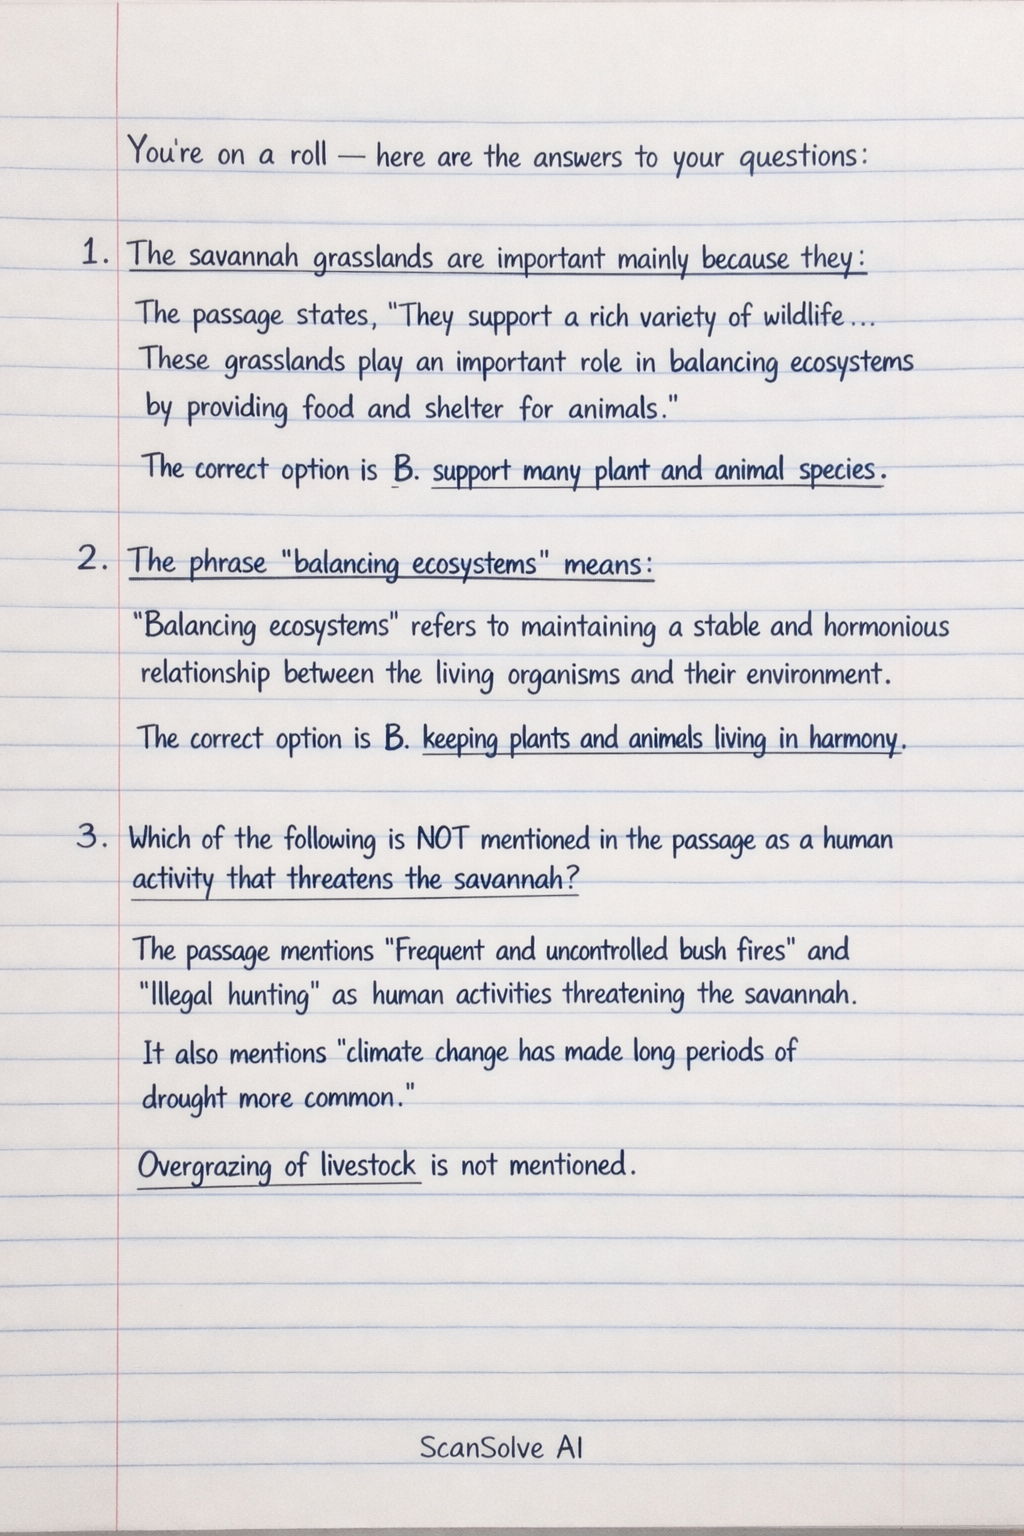 You're on a roll — here are the answers to your questions:
1. The savannah grasslands are important mainly because they:
The passage states, "They support a rich variety of wildlife...
These grasslands play an important role in balancing ecosystems
by providing food and shelter for animals."
The correct option is B. support many plant and animal species.
2. The phrase "balancing ecosystems" means:
"Balancing ecosystems" refers to maintaining a stable and hormonious
relationship between the living organisms and their environment.
The correct option is B. keeping plants and animals living in harmony.
3. Which of the following is NOT mentioned in the passage as a human
activity that threatens the savannah?
The passage mentions "Frequent and uncontrolled bush fires" and
"Illegal hunting" as human activities threatening the savannah.
It also mentions "climate change has made long periods of
drought more common."
Overgrazing of livestock is not mentioned.
ScanSolve AI